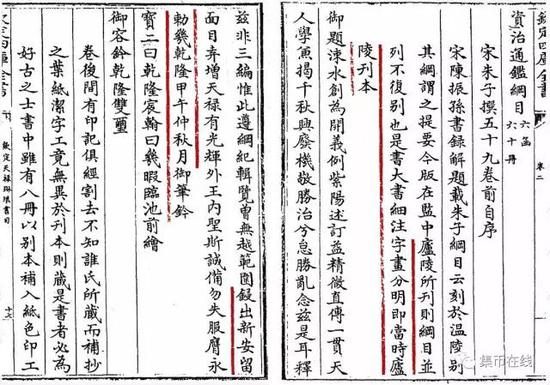 欽定四庫全書
卷二
資治通鑑綱目 六函 六十冊
宋朱子撰五十九卷前自序
宋陳振孫書録解題載朱子綱目云刻於温陵别
其綱謂之提要今版在監中廬陵所刊則綱目並
列不復别也是書大書細注字畫分明即當時廬
陵刊本
御題涑水創為開義例紫陽述訂益精微直傳一貫天
人學兼揭千秋興廢機敬勝治兮怠勝亂念兹是耳釋
兹非三編惟此遵綱紀輯覽曽無越範圍鋟出新安留
面目弆增天禄有光輝外王内聖斯誠備勿失服膺永
勅幾乾隆甲午仲秋月御筆鈐
寶二曰乾隆宸翰曰幾暇臨池前繪
御容鈐乾隆雙璽
卷後間有印記俱經割去不知誰氏所藏而補抄
之葉紙潔字工竟無異於刊本則藏是書者必為
好古之士書中雖有八冊以别本補入紙色印工
欽定四庫全書
欽定天禄琳琅書目
集币在线